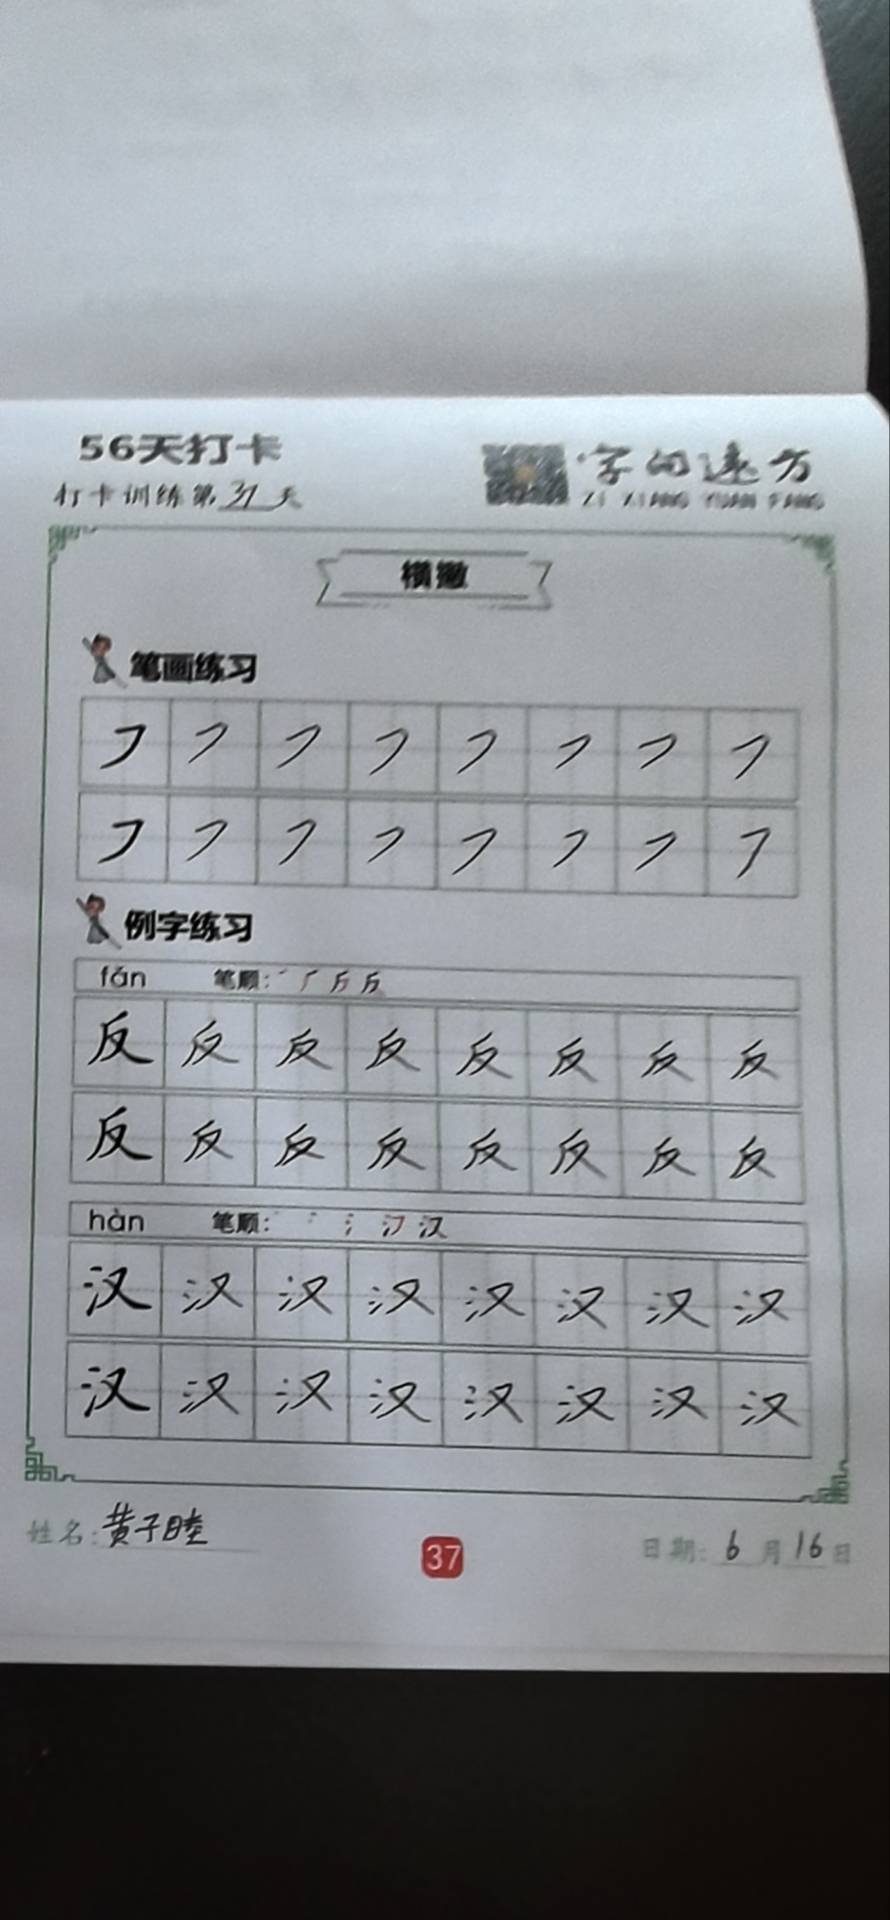 56天打卡
打卡训练第37天
字向远方
ZI XIANG YUAN FANG
横撇
笔画练习
㇇㇇㇇㇇㇇㇇㇇㇇
㇇㇇㇇㇇㇇㇇㇇㇇
例字练习
fǎn 笔顺:
反反反反反反反反
反反反反反反反反
hàn 笔顺: 汉
汉汉汉汉汉汉汉汉
汉汉汉汉汉汉汉汉
姓名:黄子睦
37
日期:6月16日